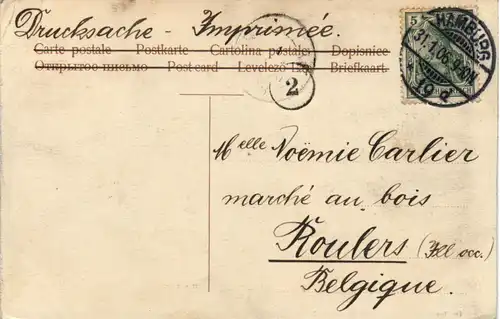 Drucksache - Imprimée.
Carte postale Postkarte Cartolina postale Dopisnice
Открытое письмо Post card Levelező lap Briefkaart
5
HAMBURG
31.1.06.
* 19 d
2
Melle Noëmie Carlier
marché au bois
Roulers (Fll occ.)
Belgique.